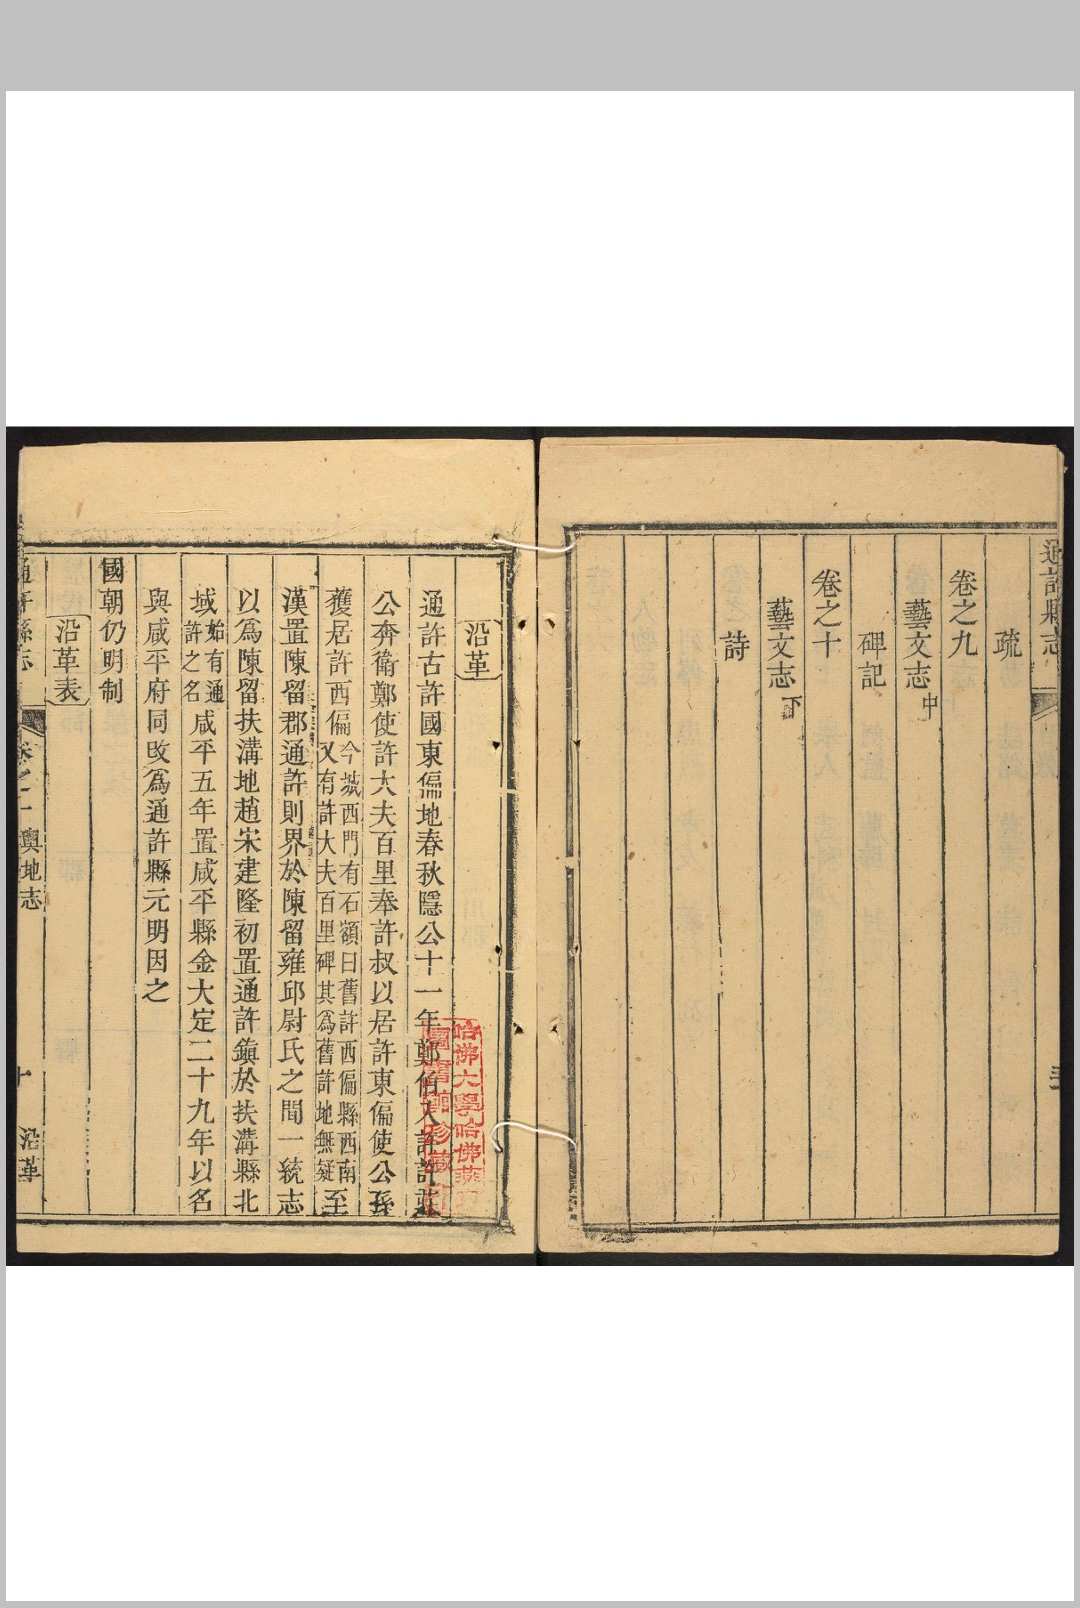 通許縣志
疏
卷之九
藝文志中
碑記
卷之十
藝文志下
詩
沿革
通許古許國東偏地春秋隱公十一年鄭伯入許許莊
公奔衛鄭使許大夫百里奉許叔以居許東偏使公孫
獲居許西偏今城西門有石額曰舊許西偏縣西南又有許大夫百里碑其爲舊許地無疑至
漢置陳留郡通許則界於陳留雍邱尉氏之間一統志
以爲陳留扶溝地趙宋建隆初置通許鎮於扶溝縣北
域始有通許之名咸平五年置咸平縣金大定二十九年以名
與咸平府同改爲通許縣元明因之
國朝仍明制
沿革表
通許縣志 卷之一 輿地志 沿革 十
哈佛大學哈佛燕京
圖書館珍藏印